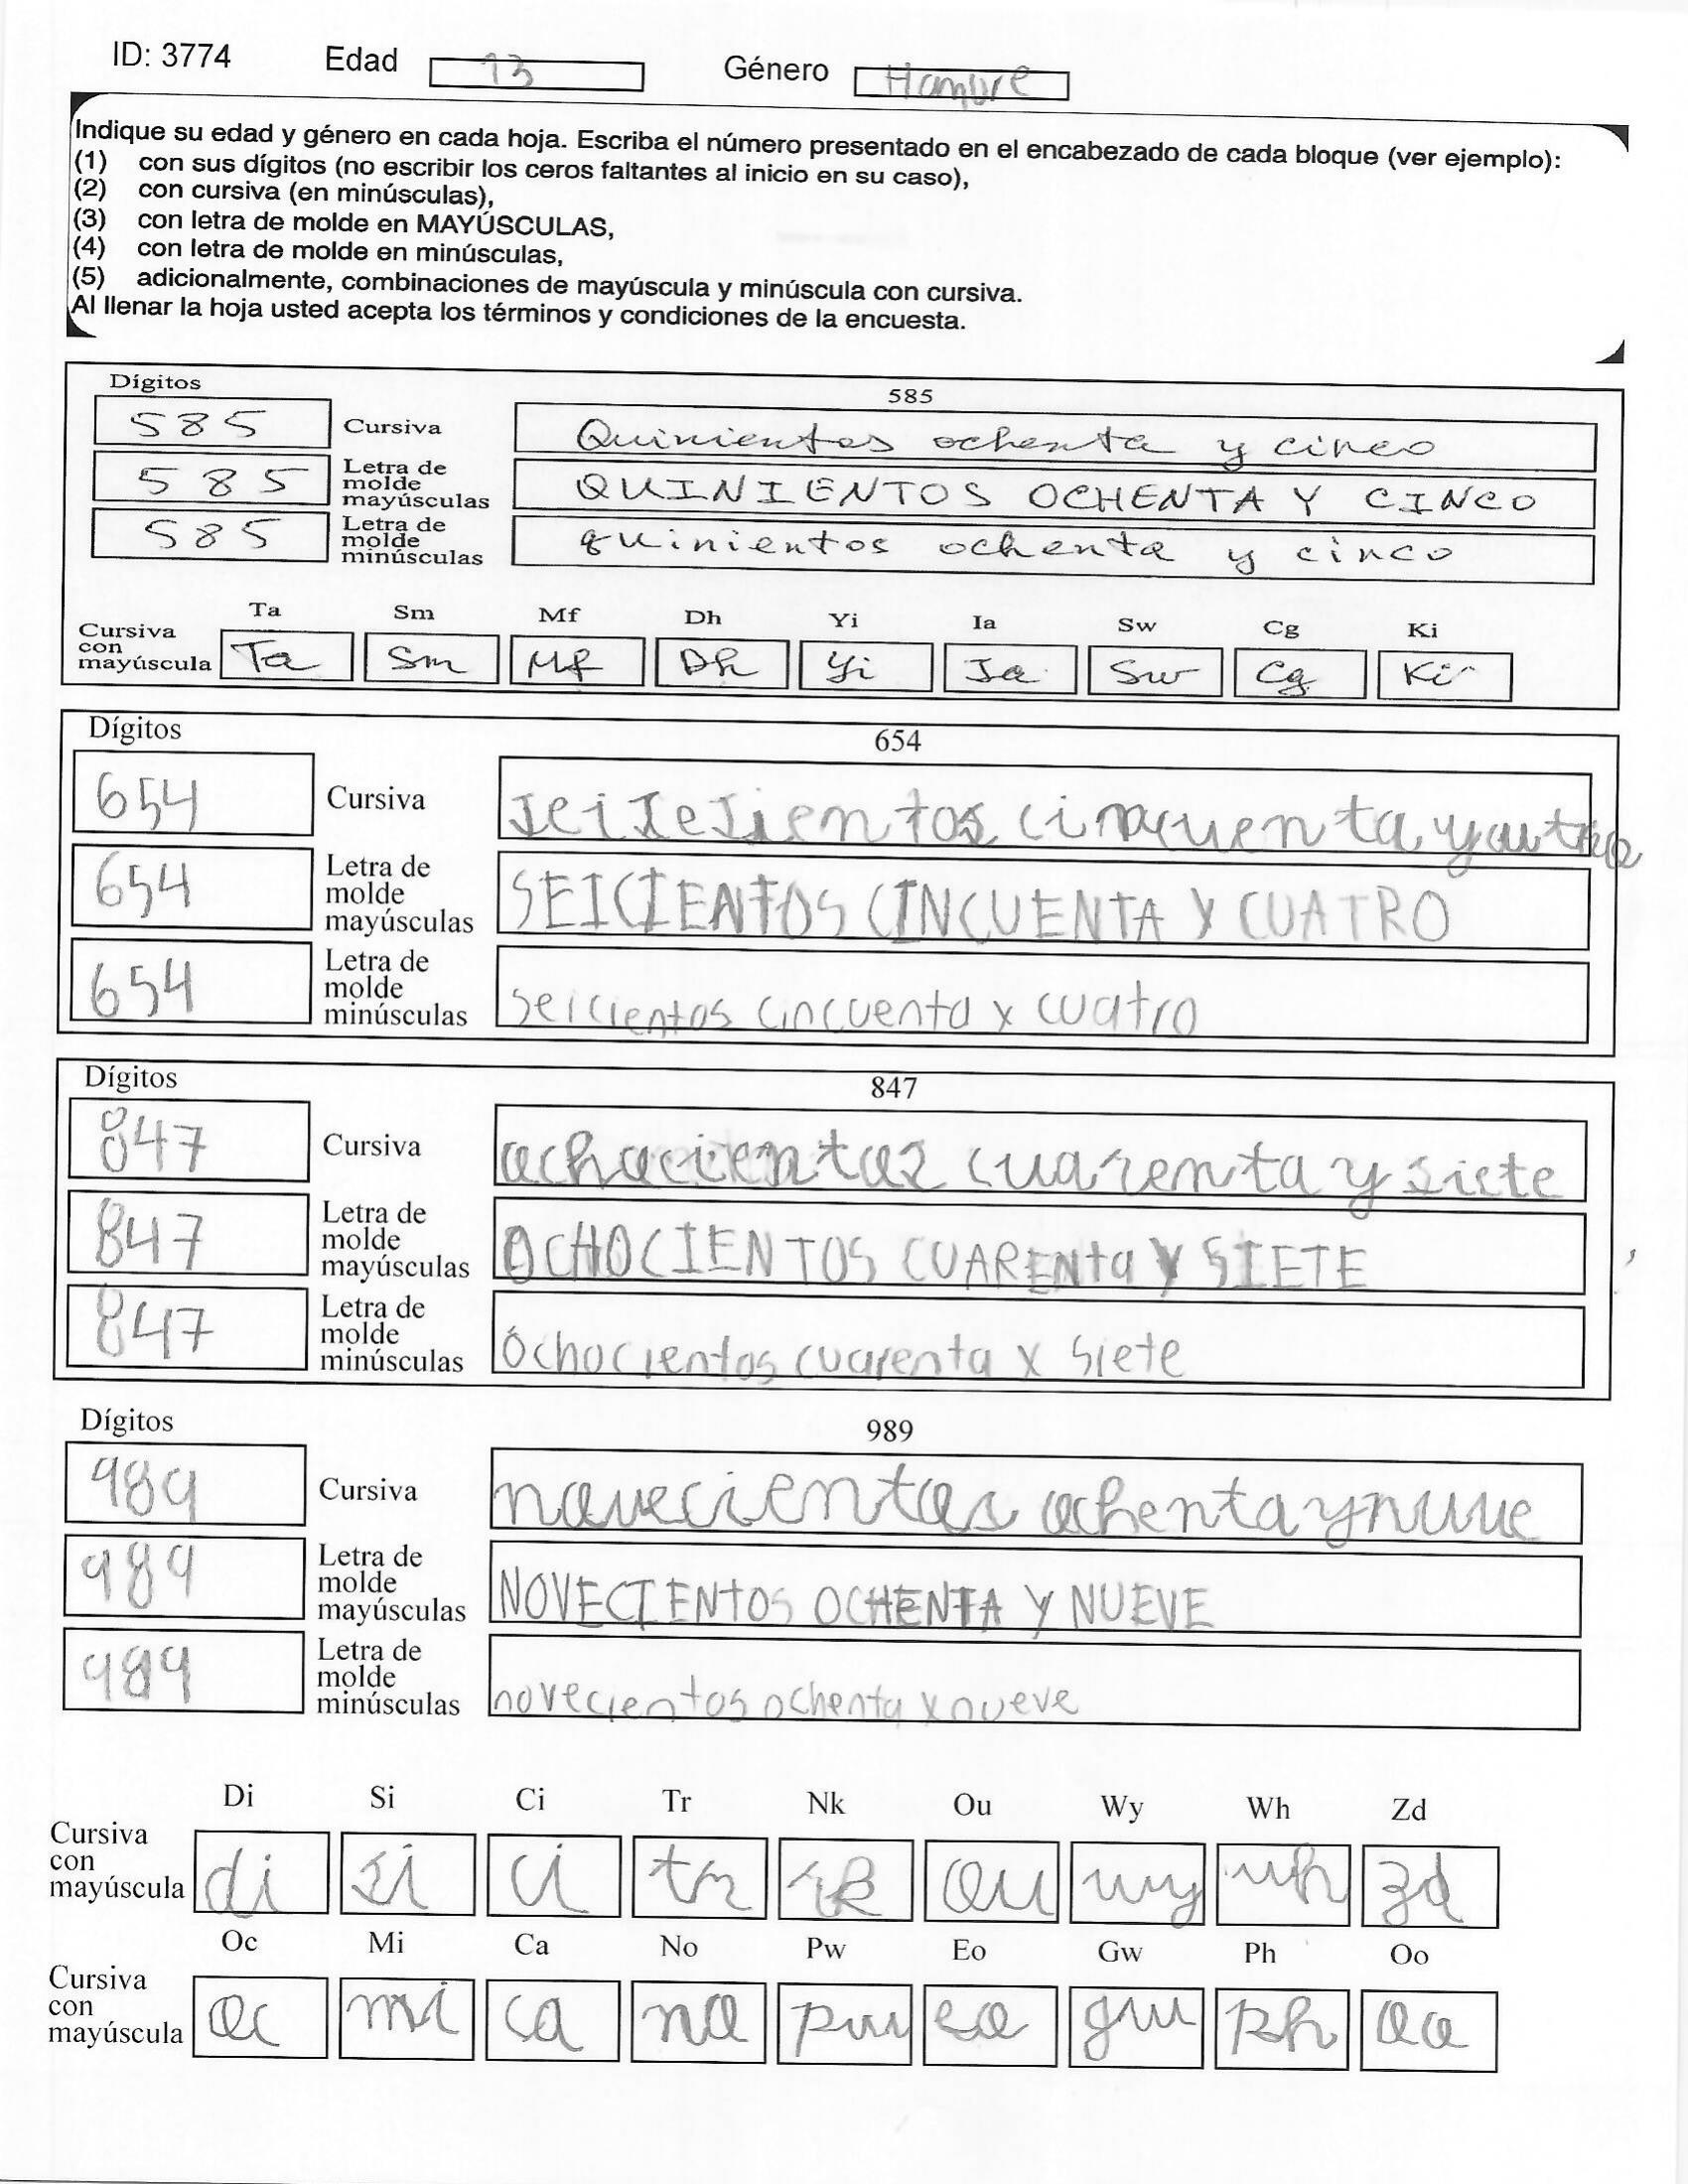 ID: 3774 Edad 13 Género Hombre
Indique su edad y género en cada hoja. Escriba el número presentado en el encabezado de cada bloque (ver ejemplo):
(1) con sus dígitos (no escribir los ceros faltantes al inicio en su caso),
(2) con cursiva (en minúsculas),
(3) con letra de molde en MAYÚSCULAS,
(4) con letra de molde en minúsculas,
(5) adicionalmente, combinaciones de mayúscula y minúscula con cursiva.
Al llenar la hoja usted acepta los términos y condiciones de la encuesta.
Dígitos 585
585 Cursiva Quinientos ochenta y cinco
585 Letra de molde mayúsculas QUINIENTOS OCHENTA Y CINCO
585 Letra de molde minúsculas quinientos ochenta y cinco
Ta Sm Mf Dh Yi Ia Sw Cg Ki
Cursiva con mayúscula Ta Sm Mf Dh Yi Ia Sw Cg Ki
Dígitos 654
654 Cursiva cincuenta
654 Letra de molde mayúsculas SEICIENTOS CINCUENTA Y CUATRO
654 Letra de molde minúsculas seicientos cincuenta y cuatro
Dígitos 847
847 Cursiva ochocientos cuarenta y siete
847 Letra de molde mayúsculas OCHOCIENTOS CUARENta Y SIETE
847 Letra de molde minúsculas Ochocientos cuarenta y siete
Dígitos 989
989 Cursiva novecientos ochenta y nueve
989 Letra de molde mayúsculas NOVECIENtOS OCHENTA Y NUEVE
989 Letra de molde minúsculas novecientos ochenta y nueve
Di Si Ci Tr Nk Ou Wy Wh Zd
Cursiva con mayúscula di si ci tr nk ou wy wh zd
Oc Mi Ca No Pw Eo Gw Ph Oo
Cursiva con mayúscula oc mi ca no pw eo gw ph oo